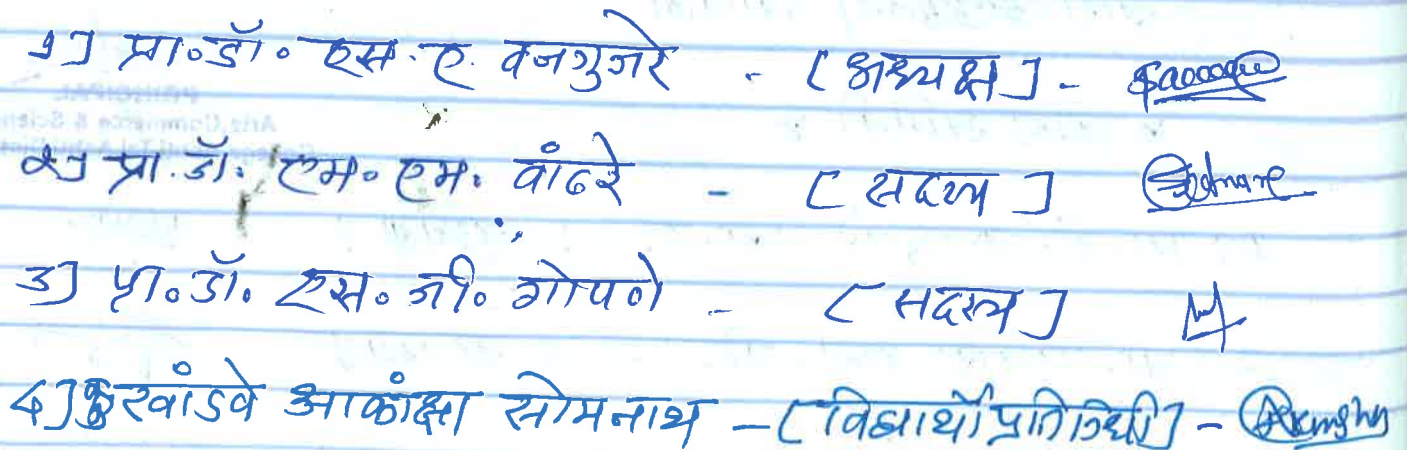 १] प्रा.डॉ. एस.ए. वनगुजरे - [अध्यक्ष] -
२] प्रा.डॉ. एम. एम. वांढरे - [सदस्य]
३] प्रा.डॉ. एस. जी. गोपणे - [सदस्य]
४] खांडवे आकांक्षा सोमनाथ - [विद्यार्थी प्रतिनिधी] -